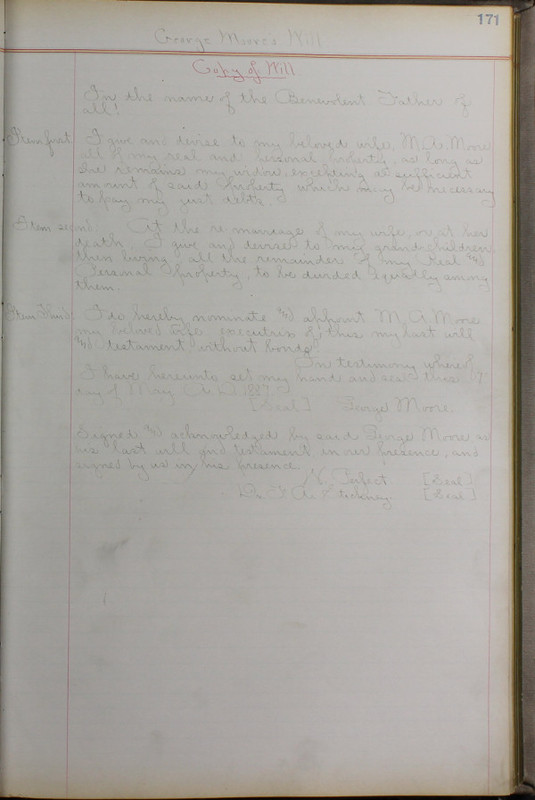 171
George Moore's Will
Copy of Will
In the name of the Benevolent Father of
all!
Item first I give and devise to my beloved wife, M. A. Moore
all of my real and personal property, as long as
she remains my widow, excepting a sufficient
amount of said Property which may be necessary
to pay my just debts.
Item second At the re marriage of my wife, or at her
death, I give and devise to my grandchildren
then living, all the remainder of my Real and
Personal Property, to be divided equally among
them.
Item Third I do hereby nominate and appoint M. A. Moore
my beloved wife executrix of this my last will
and testament, without bonds.
In testimony whereof
I have hereunto set my hand and seal this 17
day of May A. D. 1887
[Seal] George Moore.
Signed and acknowledged by said George Moore as
his last will and testament in our presence, and
signed by us in his presence
N. Perfect [Seal]
Dr. F. A. Stockney [Seal]